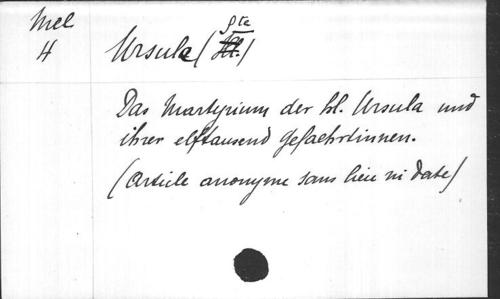 Mel
4
Ursula (Hl.) gte
Das Martyrium der hl. Ursula und
ihrer elftausend Gefaehrtinnen.
(Article anonyme sans lieu ni date)